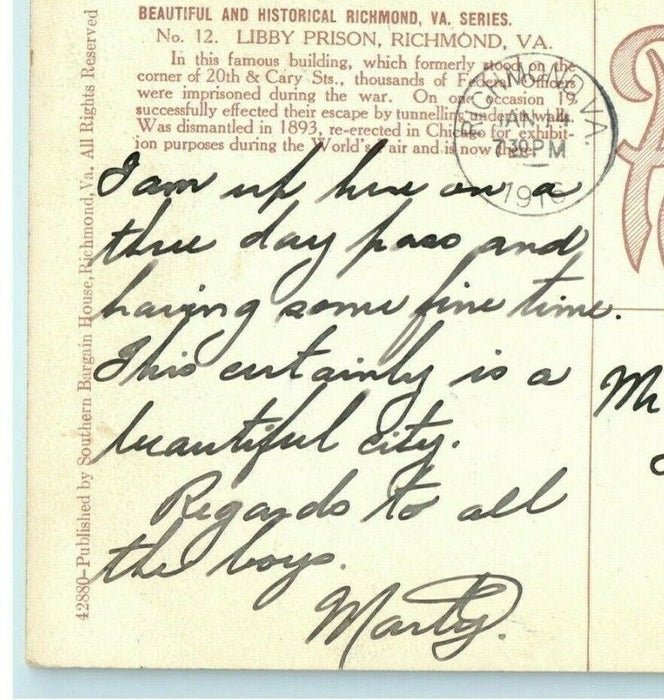 BEAUTIFUL AND HISTORICAL RICHMOND, VA. SERIES.
No. 12. LIBBY PRISON, RICHMOND, VA.
In this famous building, which formerly stood on the
corner of 20th & Cary Sts., thousands of Federal Officers
were imprisoned during the war. On one occasion 19
successfully effected their escape by tunnelling under the walls.
Was dismantled in 1893, re-erected in Chicago for exhibit-
ion purposes during the World's Fair and is now there.
RICHMOND, VA.
JAN
7 30 PM
I am up here on a
three day pass and
having some fine time.
This certainly is a
beautiful city.
Regards to all
the boys.
Marty.
42880-Published by Southern Bargain House, Richmond, Va. All Rights Reserved